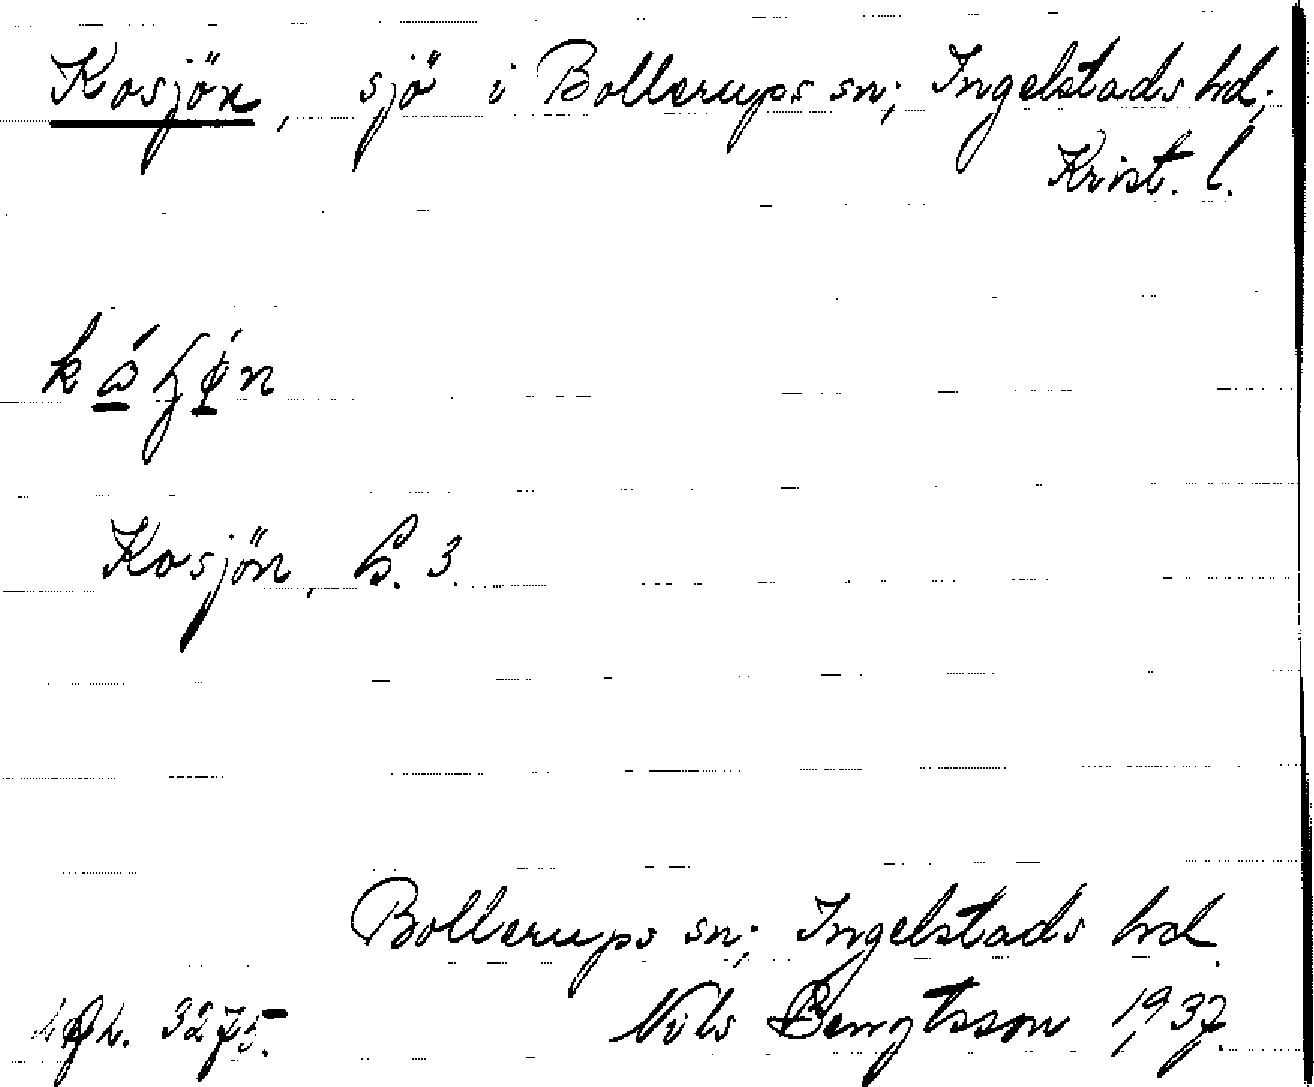 Kosjön, sjö i Bollerups sn; Ingelstads hd;
Krist. l.
Kosjön, S. 3.
Bollerups sn; Ingelstads hd.
3275. Nils Bengtsson 1937.